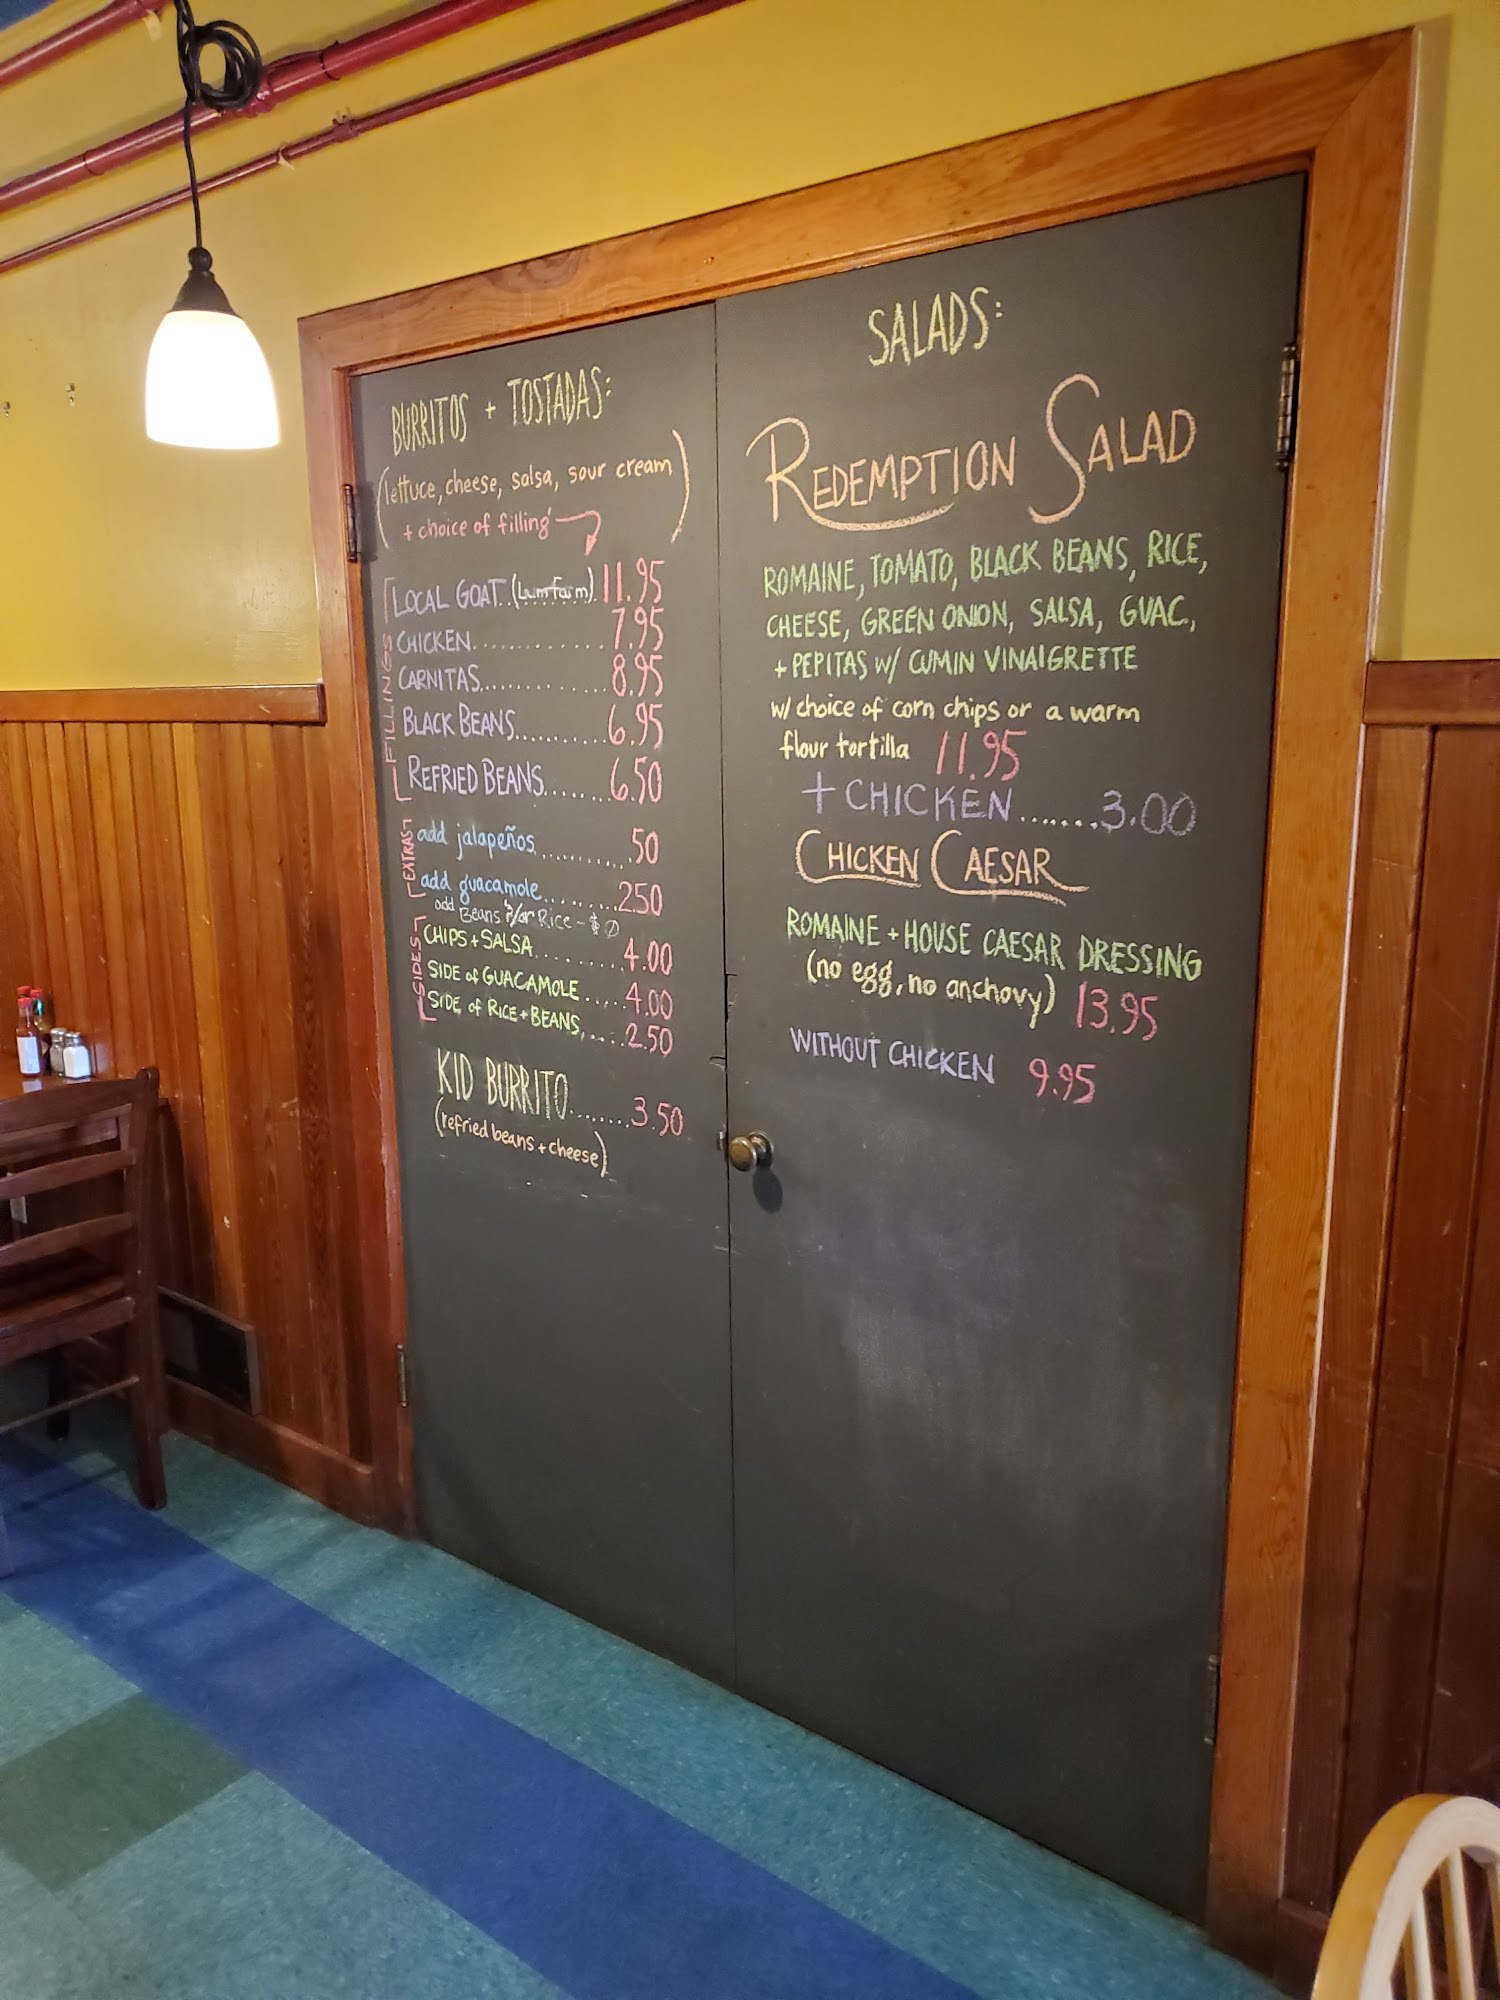 BURRITOS + TOSTADAS:
(lettuce, cheese, salsa, sour cream
+ choice of filling)
FILLINGS
LOCAL GOAT..(Lum Farm).11.95
CHICKEN..............7.95
CARNITAS..............8.95
BLACK BEANS..........6.95
REFRIED BEANS.......6.50
EXTRAS
add jalapeños............50
add guacamole.........2.50
add Beans &/or Rice - $0
SIDES
CHIPS + SALSA..........4.00
SIDE of GUACAMOLE.....4.00
SIDE of RICE + BEANS.....2.50
KID BURRITO........3.50
(refried beans + cheese)
SALADS:
REDEMPTION SALAD
ROMAINE, TOMATO, BLACK BEANS, RICE,
CHEESE, GREEN ONION, SALSA, GUAC,
+ PEPITAS w/ CUMIN VINAIGRETTE
w/ choice of corn chips or a warm
flour tortilla 11.95
+ CHICKEN.......3.00
CHICKEN CAESAR
ROMAINE + HOUSE CAESAR DRESSING
(no egg, no anchovy) 13.95
WITHOUT CHICKEN 9.95